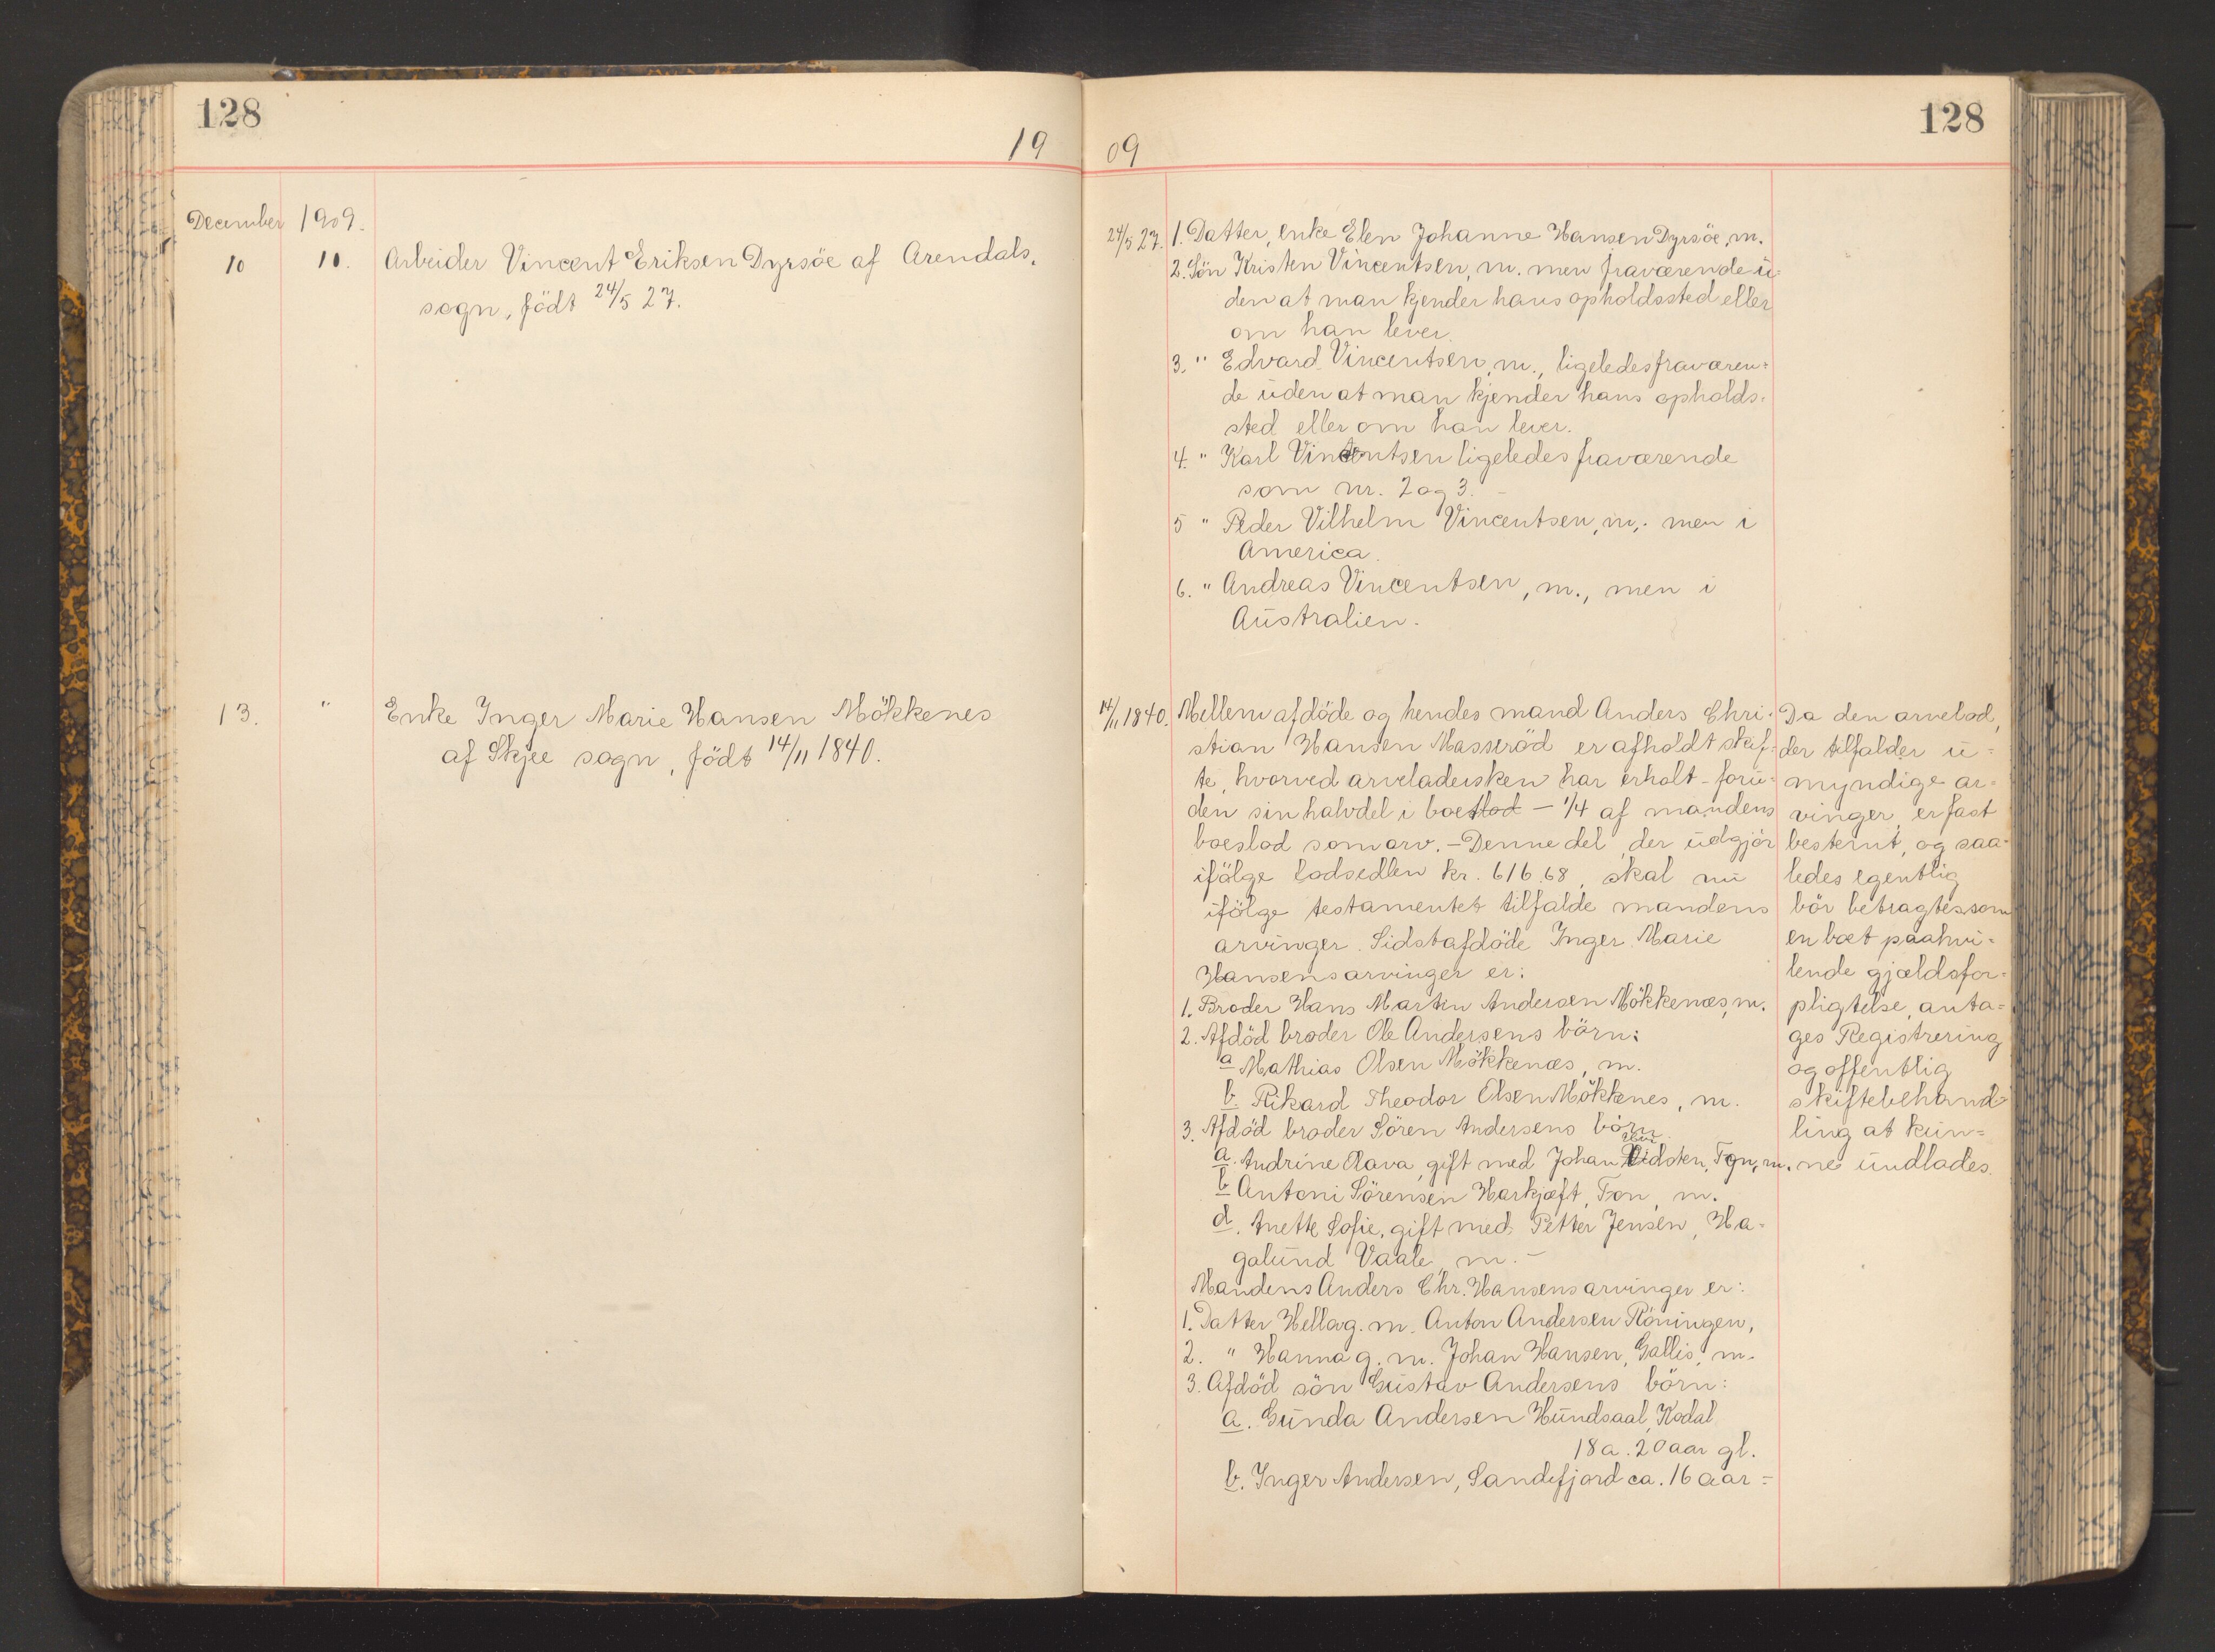 128
19
December 1909.
10 10. Arbeider Vincent Eriksen Dyrsöe af Arendals,
sogn, födt 24/5 27.
13. " Enke Inger Marie Hansen Mökkenes
af Skjee sogn, födt 14/11 1840.
128
09
24/5 27. 1. Datter, enke Elen Johanne Hansen Dyrsöe, m.
2. Sön Kristen Vincentsen, m. men fraværende u-
den at man kjender hans opholdssted eller
om han lever.
3. " Edvard Vincentsen, m., ligeledes fraværen-
de uden at man kjender hans opholds-
sted eller om han lever.
4. " Karl Vincentsen ligeledes fraværende
som nr. 2 og 3. -
5 " Peder Vilhelm Vincentsen, m., men i
America.
6. " Andreas Vincentsen, m., men i
Australien.
14/11 1840. Mellem afdöde og hendes mand Anders Chri-
stian Hansen Masseröd er afholdt skif-
te, hvorved arveladersken har erholt - foru-
den sin halvdel i boetlod - 1/4 af mandens
boeslod som arv. - Denne del, der udgjör
ifölge Lodsedlen kr. 616.68, skal nu
ifölge testamentet tilfalde mandens
arvinger. Sidstafdöde Inger Marie
Hansens arvinger er:
1. Broder Hans Martin Andersen Mökkenæs, m.
2. Afdöd broder Ole Andersens börn:
a Mathias Olsen Mökkenæs, m.
b. Rikard Theodor Olsen Mökkenes, m.
3. Afdöd broder Sören Andersens börn
a. Andrine Olava, gift med Johan Vidsten, Fon, m.
b Antoni Sörensen Harkjæft, Fon, m.
d. Anette Sofie, gift med Petter Jensen, Ha-
galund Vaale, m. -
Mandens Anders Chr. Hansens arvinger er:
1. Datter Hella g. m. Anton Andersen Röningen,
2. " Hanna g. m. Johan Hansen, Gallis, m.
3. Afdöd sön Gustav Andersens börn:
a. Gunda Andersen Hundsaal, Kodal
18 a. 20 aar gl.
b. Inger Andersen, Sandefjord ca. 16 aar -
Da den arvelod,
der tilfalder u-
myndige ar-
vinger, er fast
bestemt, og saa-
ledes egentlig
bör betragtes som
en boet paahvi-
lende gjældsfor-
pligtelse, anta-
ges Registrering
og offentlig
skiftebehand-
ling at kun-
ne undlades.